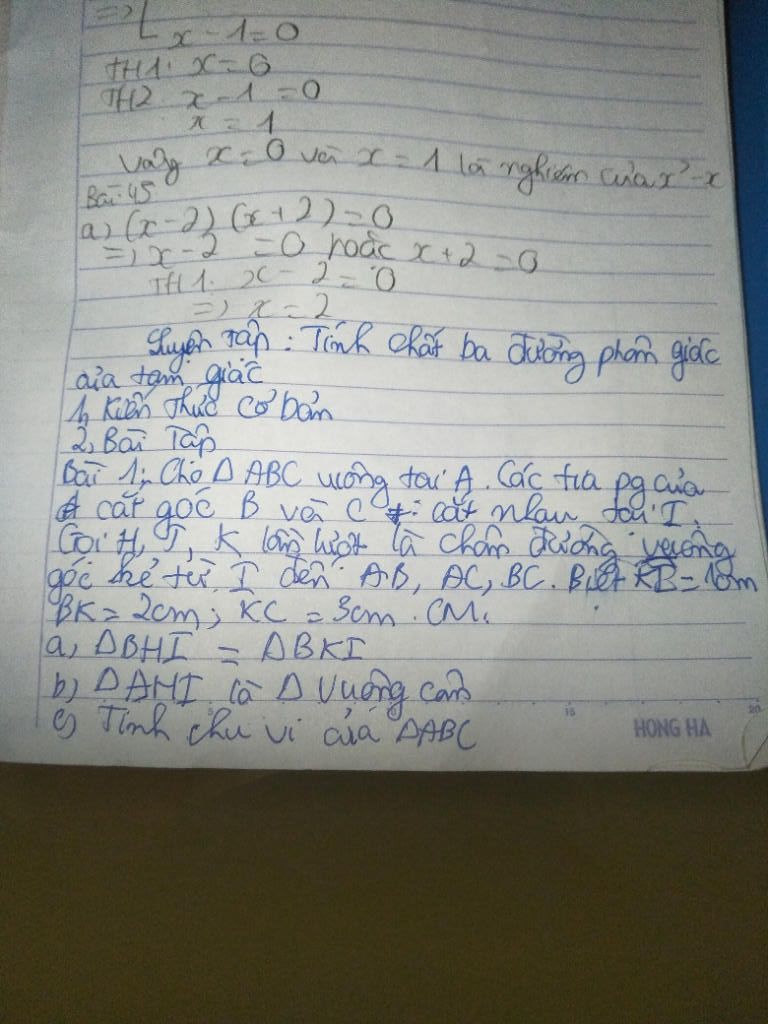 => [ x - 1 = 0
TH1: x = 0
TH2: x - 1 = 0
x = 1
Vậy x = 0 và x = 1 là nghiệm của x² - x
Bài 45
a, (x - 2) (x + 2) = 0
=> x - 2 = 0 hoặc x + 2 = 0
TH1: x - 2 = 0
=> x = 2
Luyện tập: Tính chất ba đường phân giác
của tam giác
1, Kiến thức cơ bản
2, Bài Tập
Bài 1: Cho Δ ABC vuông tại A. Các tia pg của
cắt góc B và C cắt nhau tại I.
Gọi H, J, K lần lượt là chân đường vuông
góc kẻ từ I đến AB, AC, BC. Biết KB = 1cm
BK = 2cm; KC = 3cm. CM:
a, ΔBHI = ΔBKI
b) ΔAHI là Δ vuông cân
c) Tính chu vi của ΔABC
15 20
HONG HA